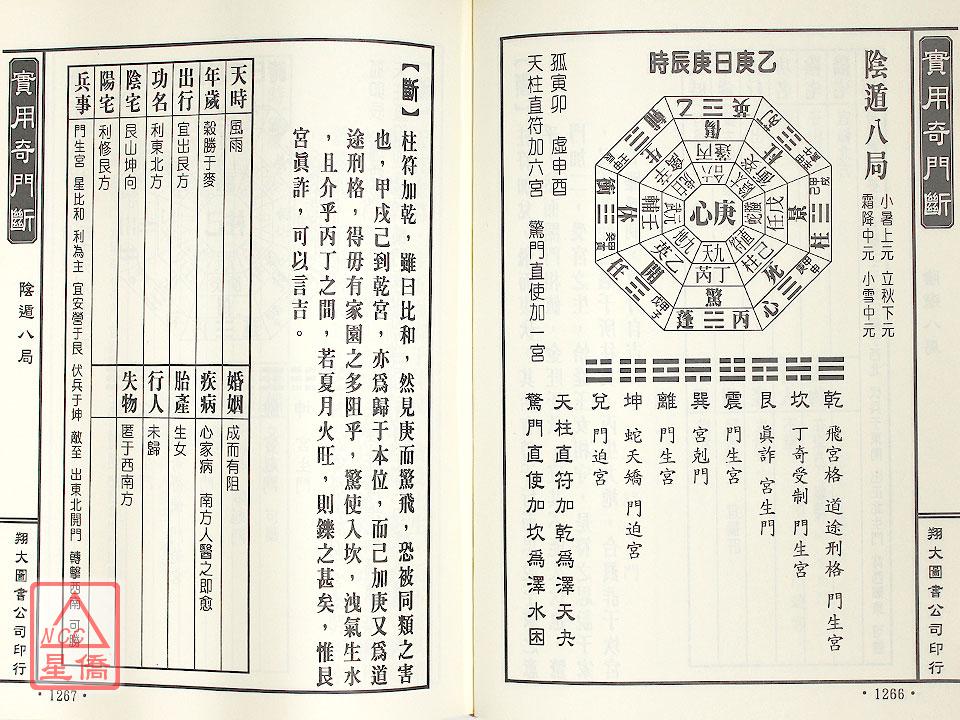 實用奇門斷
陰遁八局
小暑上元 立秋下元
霜降中元 小雪中元
乙庚日庚辰時
孤寅卯 虛申酉
天柱直符加六宮 驚門直使加一宮
庚心
乾 飛宮格 道途刑格 門生宮
坎 丁奇受制 門生宮
艮 真詐 宮生門
震 門生宮
巽 宮剋門
離 門生宮
坤 蛇夭矯 門迫宮
兌 門迫宮
天柱直符加乾為澤天夬
驚門直使加坎為澤水困
翔大圖書公司印行
·1266·
【斷】柱符加乾,雖曰比和,然見庚而驚飛,恐被同類之害
也,甲戌己到乾宮,亦為歸于本位,而己加庚又為道
途刑格,得毋有家園之多阻乎,驚使入坎,洩氣生水
,且介乎丙丁之間,若夏月火旺,則鑠之甚矣,惟艮
宮眞詐,可以言吉。
天時 風雨
年歲 穀勝于麥
出行 宜出艮方
功名 利東北方
陰宅 艮山坤向
陽宅 利修艮方
兵事 門生宮 星比和 利為主 宜安營于艮 伏兵于坤 敵至 出東北開門 轉擊西南 可勝
婚姻 成而有阻
疾病 心家病 南方人醫之即愈
胎產 生女
行人 未歸
失物 匿于西南方
實用奇門斷
陰遁八局
翔大圖書公司印行
·1267·
NCC
星僑